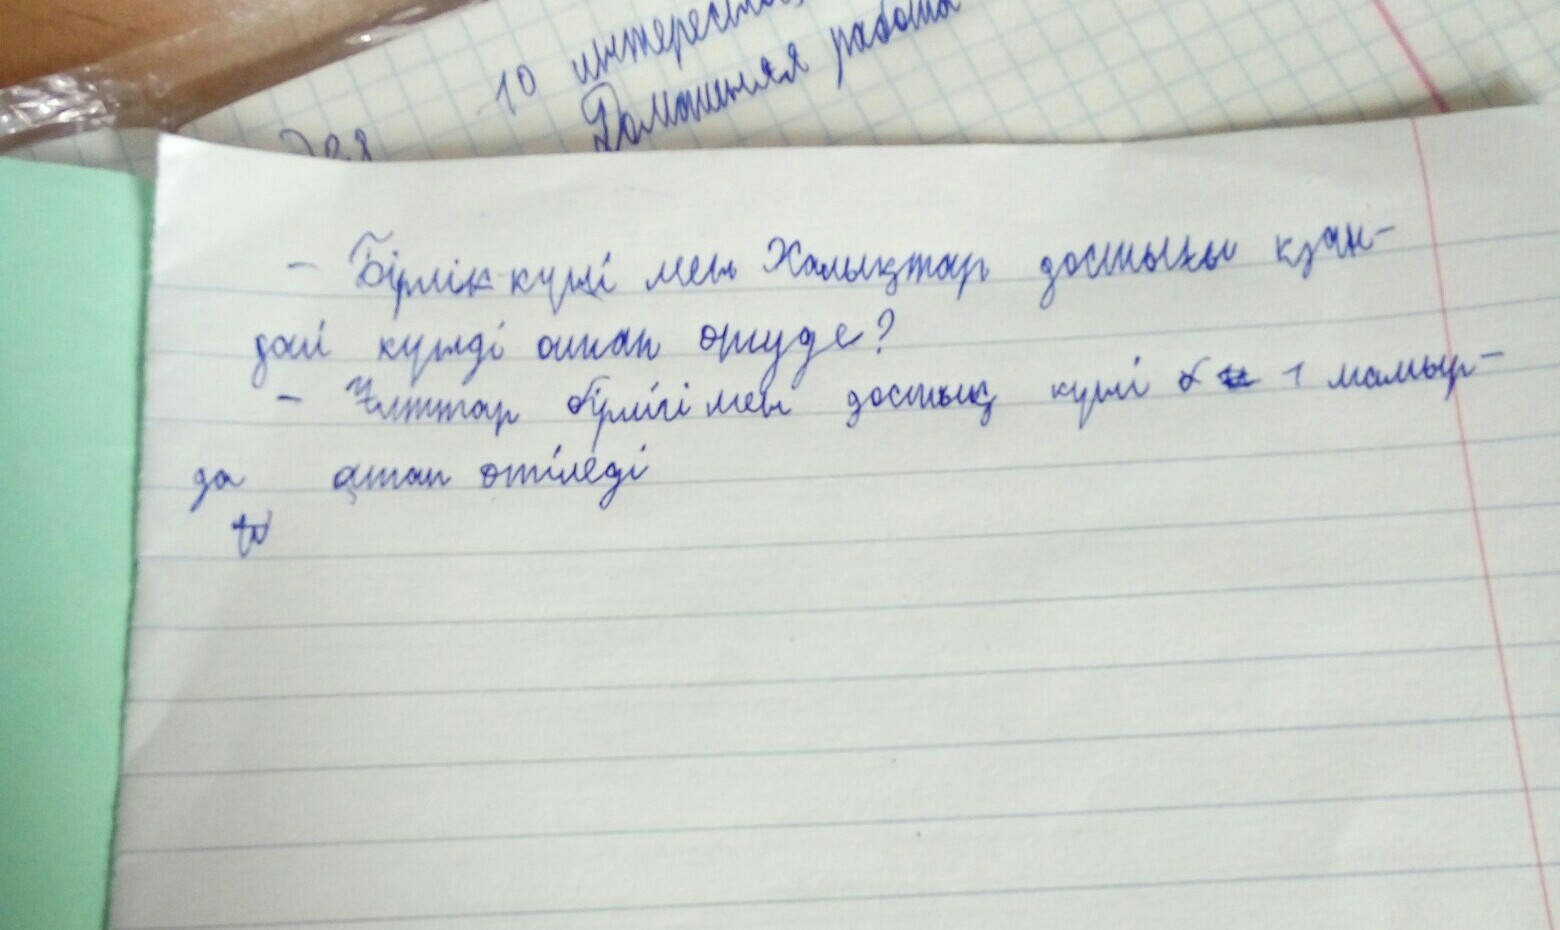 10 интересны
Домашняя работа
Для
- Бірлік күні мен Халықтар достығы қан-
дай күнді атап өтуде?
- Ұлттар бірлігі мен достық күні 1 мамыр-
да атап өтіледі